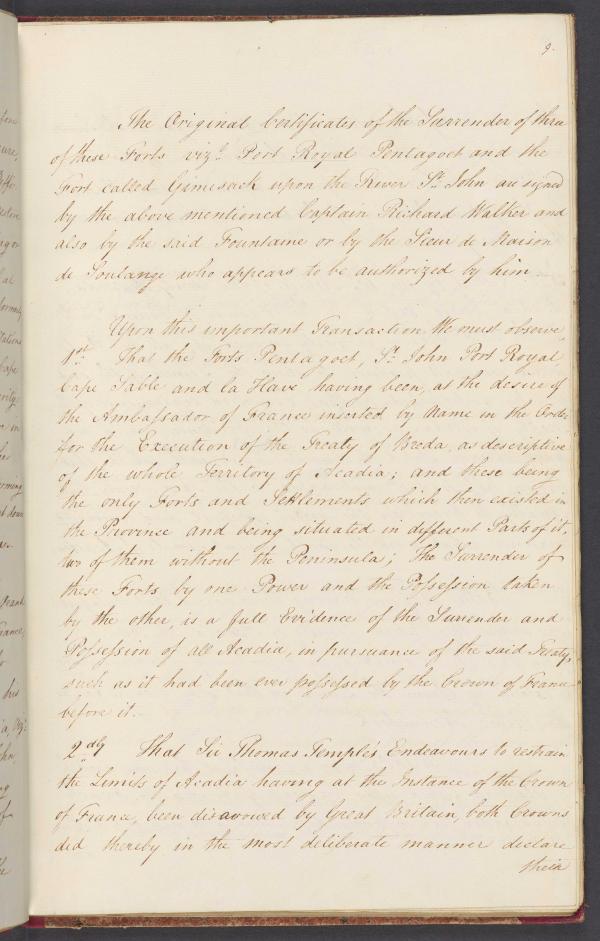 9.
The Original Certificates of the Surrender of three
of these Forts vizt. Port Royal Pentagoet and the
Fort called Gimisack upon the River St. John are signed
by the above mentioned Captain Richard Walker and
also by the said Fountaine or by the Sieur de Maison
de Soulange who appears to be authorized by him
Upon this important Transaction We must observe,
1st. That the Forts Pentagoet, St. John Port Royal,
Cape Sable and la Have having been, at the desire of
the Ambassador of France inserted by Name in the Order
for the Execution of the Treaty of Breda, as descriptive
of the whole Territory of Acadia; and these being
the only Forts and Settlements which then existed in
the Province and being situated in different Parts of it,
two of them without the Peninsula; The Surrender of
these Forts by one Power and the Possession taken
by the other, is a full Evidence of the Surrender and
Possession of all Acadia, in pursuance of the said Treaty,
such as it had been ever possessed by the Crown of France
before it.
2dly That Sir Thomas Temple's Endeavours to restrain
the Limits of Acadia having at the Instance of the Crown
of France, been disavowed by Great Britain, both Crowns
did thereby in the most deliberate manner declare
their